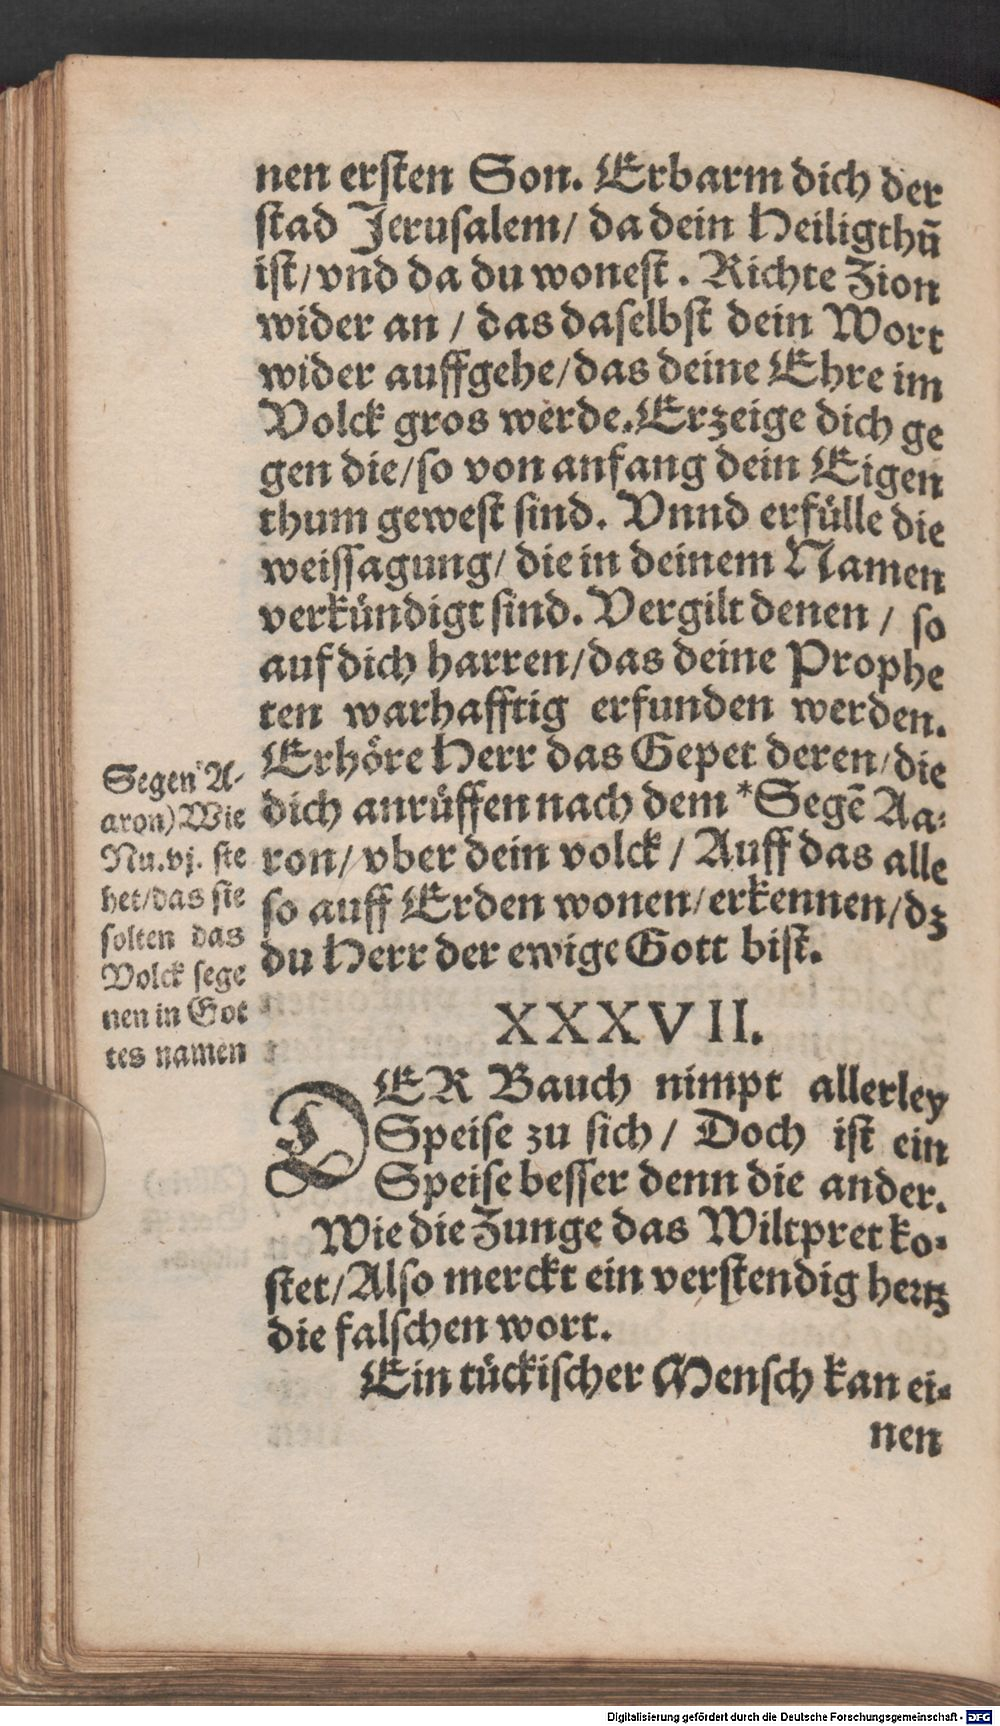 nen erſten Son. Erbarm dich der
ſtad Jeruſalem/ da dein Heiligthū
iſt/ vnd da du woneſt. Richte Zion
wider an / das daſelbſt dein Wort
wider auffgehe/das deine Ehre im
Volck gros werde. Erzeige dich ge
gen die/ſo von anfang dein Eigen
thum geweſt ſind. Vnnd erfülle die
weiſſagung/ die in deinem Namen
verkündigt ſind. Vergilt denen / ſo
auf dich harren/das deine Prophe
ten warhafftig erfunden werden.
Erhöre Herr das Gepet deren/die
dich anrüffen nach dem *Segē Aa-
ron/ vber dein volck / Auff das alle
ſo auff Erden wonen/erkennen/dz
du Herr der ewige Gott biſt.
Segen A-
aron) Wie
Nu.vj. ſte
het/das ſie
ſolten das
Volck ſege
nen in Got
tes namen
XXXVII.
DER Bauch nimpt allerley
Speiſe zu ſich/ Doch iſt ein
Speiſe beſſer denn die ander.
Wie die Zunge das Wiltpret ko-
ſtet/Alſo merckt ein verſtendig hertz
die falſchen wort.
Ein tückiſcher Menſch kan ei-
nen
Digitalisierung gefördert durch die Deutsche Forschungsgemeinschaft - DFG